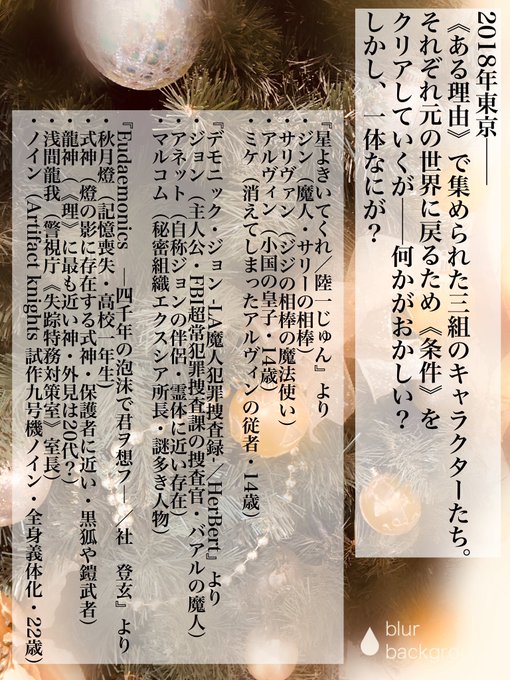 2018年東京――
《ある理由》で集められた三組のキャラクターたち。
それぞれ元の世界に戻るため《条件》を
クリアしていくが――何かがおかしい？
しかし、一体なにが？
『星よきいてくれ／陸一じゅん』より
・ジン（魔人・サリーの相棒）
・サリヴァン（ジジの相棒の魔法使い）
・アルヴィン（小国の皇子・14歳）
・ミケ（消えてしまったアルヴィンの従者・14歳）
『デモニック・ジョン -LA魔人犯罪捜査録-／HerBert』より
・ジョン（主人公・FBI超常犯罪捜査課の捜査官・バアルの魔人）
・アネット（自称ジョンの伴侶・霊体に近い存在）
・マルコム（秘密組織エクスシア所長・謎多き人物）
『Eudaemonics ―四千年の泡沫で君ヲ想フ―／社 登玄』より
・秋月燈（記憶喪失・高校一年生）
・式神（燈の影に存在する式神・保護者に近い・黒狐や鎧武者）
・龍神（《理》に最も近い神・外見は20代？）
・浅間龍我（警視庁《失踪特務対策室》室長）
・ノイン（Artifact knights 試作九号機ノイン・全身義体化・22歳）
blur
backgro